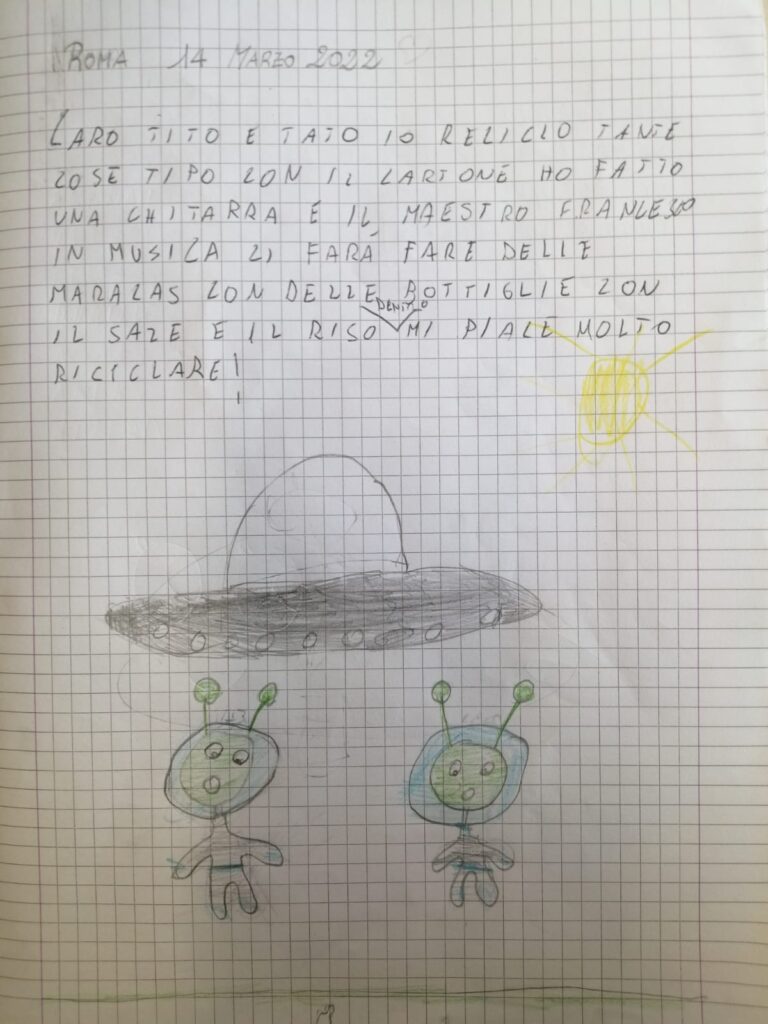 ROMA 14 MARZO 2022
CARO TITO E TATO IO RELICLO TANTE
COSE TIPO CON IL CARTONE HO FATTO
UNA CHITARRA E IL MAESTRO FRANCESCO
IN MUSICA CI FARÁ FARE DELLE
MARACAS CON DELLE BOTTIGLIE CON
DENTRO
IL SALE E IL RISO MI PIACE MOLTO
RICICLARE!